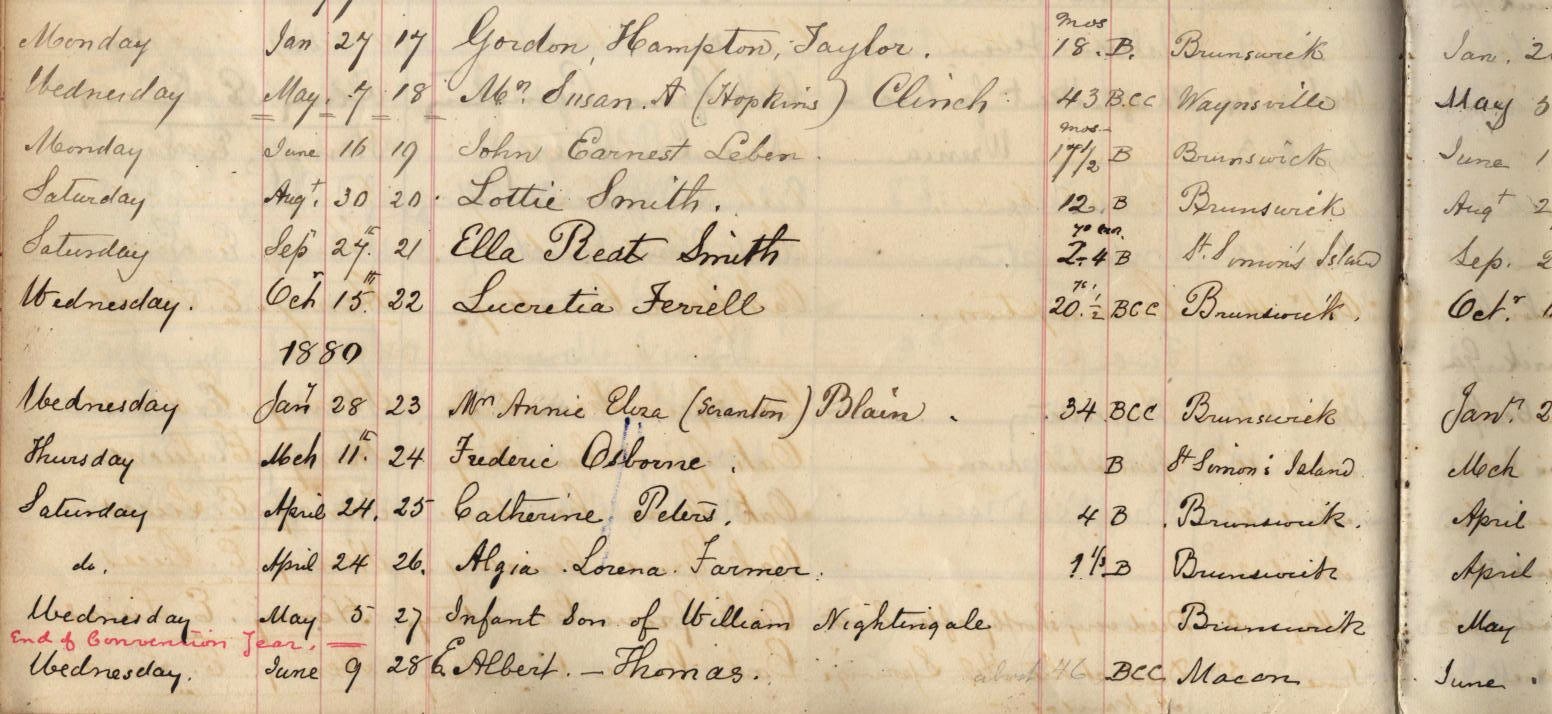 Monday Jan 27 17 Gordon, Hampton, Taylor. mos 18. B. Brunswick Jan. 2
Wednesday May. 7 18 Mrs. Susan. A (Hopkins) Clinch. 43 B.CC Waynsville May
Monday June 16 19 John Earnest Leben. mos 17 1/2 B Brunswick June 1
Saturday Augt. 30 20. Lottie Smith. 12. B Brunswick Augt 2
Saturday Sep 27th. 21 Ella Smith 2-4 B St. Simon's Island Sep. 2
Wednesday. Octr 15th. 22 Lucretia Ferrell 20. 1/2 BCC Brunswick. Octr. 1
1880
Wednesday Jany 28 23 Mrs Annie Eliza (Scranton) Blain. 34 BCC Brunswick Jany. 2
Thursday Mch 11th. 24 Frederic Osborne. B St Simon's Island Mch
Saturday April 24. 25 Catherine Peters. 4 B. Brunswick. April
do. April 24 26. Algia. Lorena. Farmer. B Brunswick April
Wednesday May 5 27 Infant Son of William Nightingale Brunswick May
End of Convention Year.
Wednesday. June 9 28 E. Albert. — Thomas. about 46 BCC Macon June